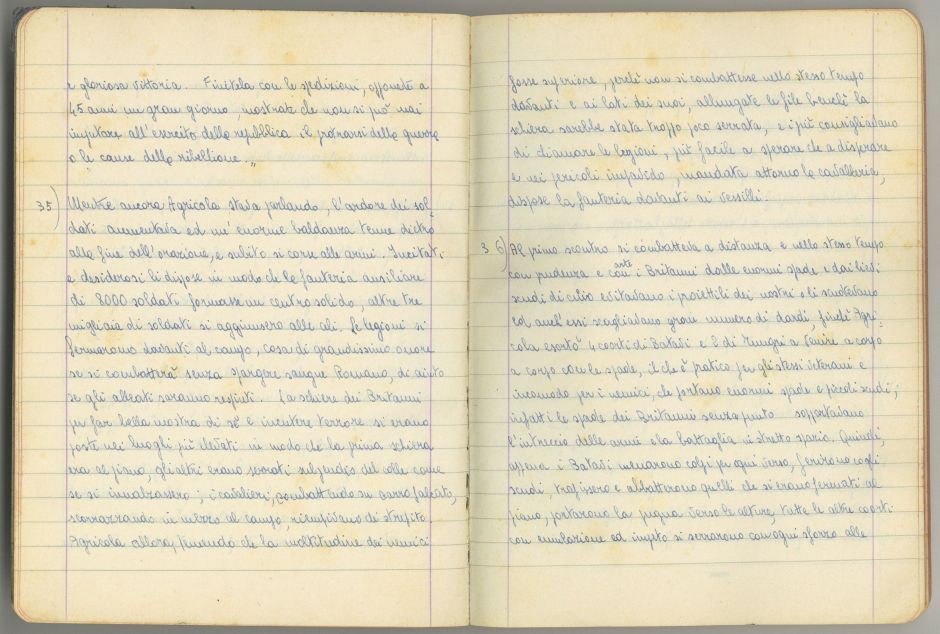 e gloriosa vittoria. Finitela con le spedizioni, opponete a
45 anni un gran giorno, mostrate che non si può mai
imputare all'esercito della repubblica il protrarsi della guerra
o le cause della ribellione."
35) Mentre ancora Agricola stava parlando, l'ardore dei sol-
dati aumentava ed un'enorme baldanza tenne dietro
alla fine dell'orazione, e subito si corse alle armi. Incitati
e desiderosi li dispose in modo che le fanteria ausiliare
di 8000 soldati formasse un centro solido, altre tre
migliaia di soldati si aggiunsero alle ali. Le legioni si
fermarono davanti al campo, cosa di grandissimo onore
se si combatterà senza spargere sangue Romano, di aiuto
se gli alleati saranno respinti. La schiera dei Britanni
per far bella mostra di sè e incutere terrore si erano
poste nei luoghi più elevati in modo che la prima schiera
era al piano, gli altri erano sul del colle come
se si innalzassero; i cavalieri, combattendo su carro falcato,
scorrazzando in mezzo al campo, riempivano di strepito.
Agricola allora, temendo che la moltitudine dei nemici
fosse superiore, perchè non si combattesse nello stesso tempo
davanti e ai lati dei suoi, allungate le file benchè la
schiera sarebbe stata troppo poco serrata, e i più consigliavano
di chiamare le legioni, più facile a sperare che a disperare
e nei pericoli impavido, mandata attorno la cavalleria,
dispose la fanteria davanti ai vessilli.
36) Al primo scontro si combatteva a distanza e nello stesso tempo
con prudenza e con arte i Britanni dalle enormi spade e dai brevi
scudi di cuoio evitavano i proiettili dei nostri e li scuotevano
ed anch'essi scagliavano gran numero di dardi, finchè Agri-
cola esortò 4 coorti di Batavi e 2 di Tungri a venire a corpo
a corpo con le spade, il che è pratico per gli stessi veterani e
incomodo per i nemici, che portano enormi spade e piccoli scudi;
infatti le spade dei Britanni senza punta sopportavano
l'intreccio delle armi e la battaglia in stretto spazio. Quindi,
appena i Batavi menarono colpi per ogni verso, ferirono cogli
scudi, trafissero e abbatterono quelli che si erano fermati al
piano, portarono la pugna verso le alture, tutte le altre coorti
con emulazione ed impeto si serrarono con ogni sforzo alle